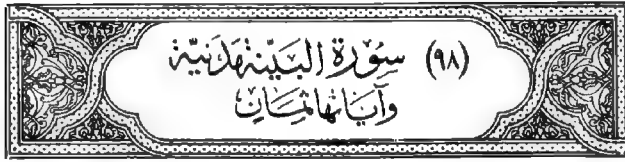 (٩٨) سُورَةُ البَيِّنَة مَدَنِيَّة
وَآيَاتُهَا ثَمَانٍ